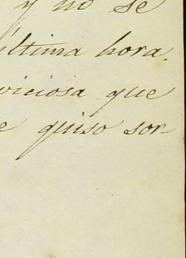 y no se
última hora.
viciosa que
e quiso sor-